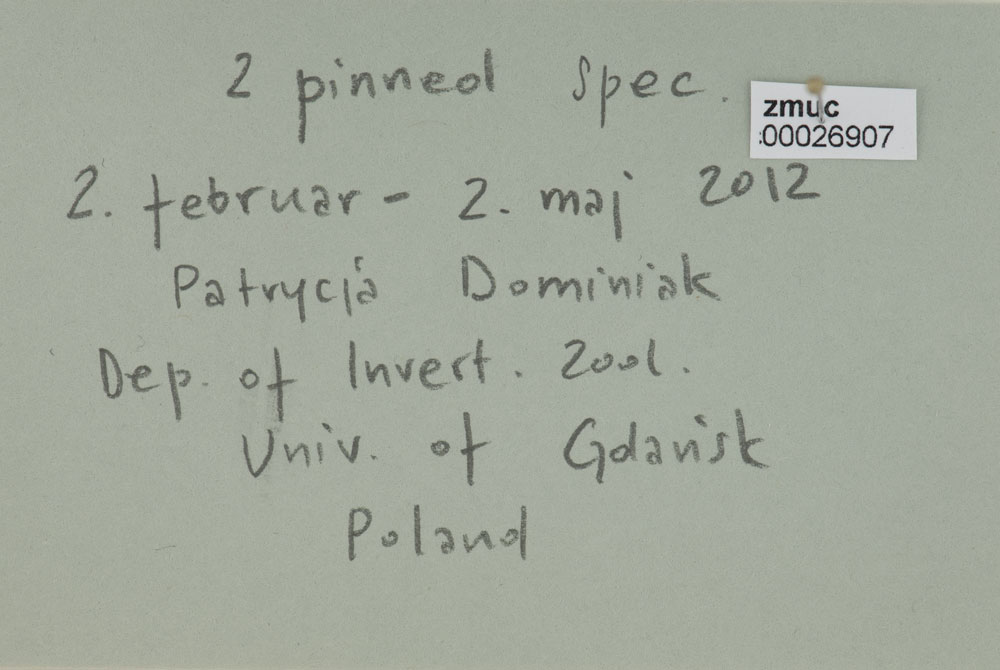 2 pinned spec.
zmuc
00026907
2. februar - 2. maj 2012
Patrycja Dominiak
Dep. of Invert. Zool.
Univ. of Gdańsk
Poland